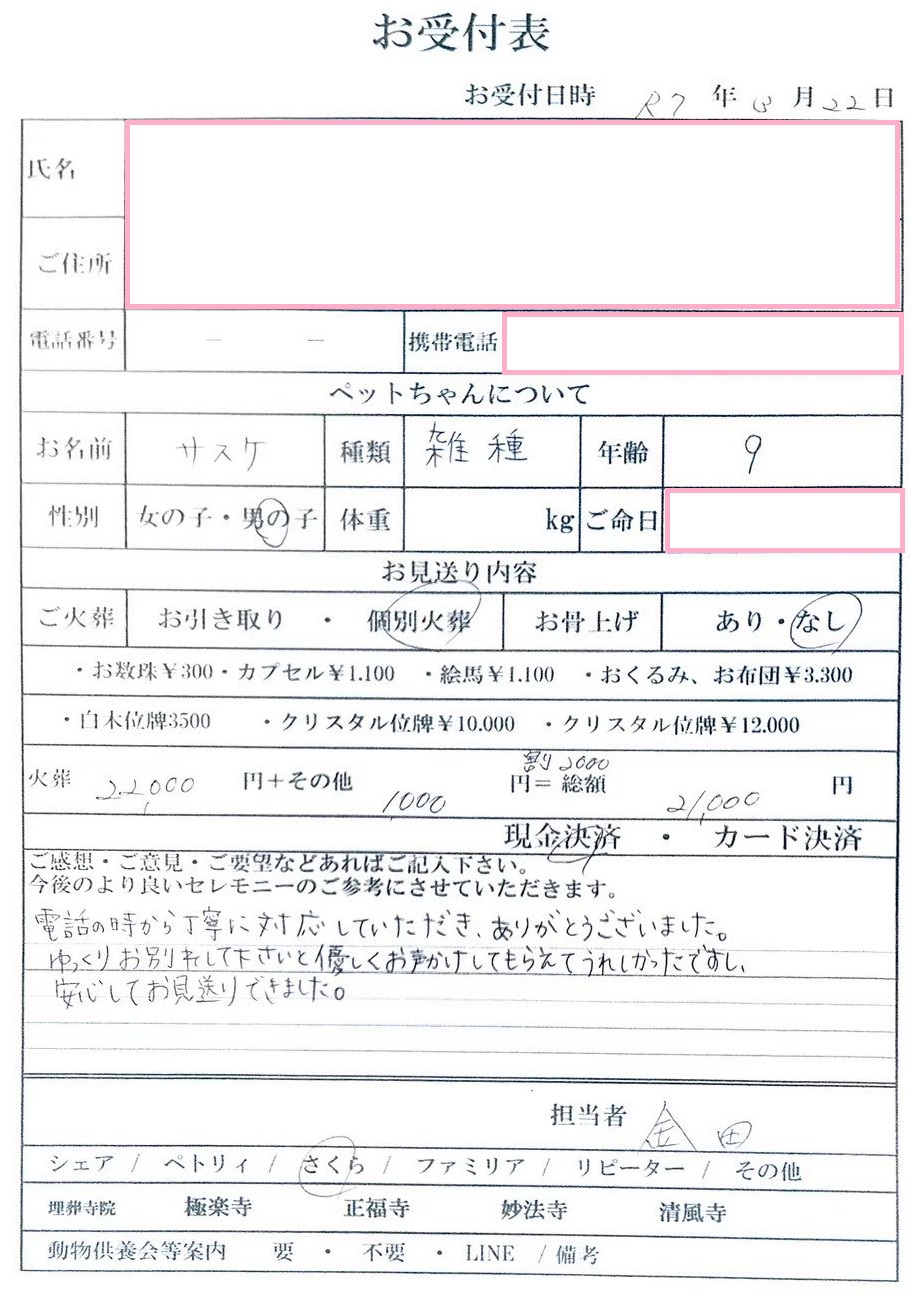 お受付表
お受付日時 R7 年 3 月 22 日
氏名
ご住所
電話番号 ― ― 携帯電話
ペットちゃんについて
お名前 サスケ 種類 雑種 年齢 9
性別 女の子・男の子 体重 kg ご命日
お見送り内容
ご火葬 お引き取り ・ 個別火葬 お骨上げ あり・なし
・お数珠¥300・カプセル¥1.100 ・絵馬¥1.100 ・おくるみ、お布団¥3.300
・白木位牌3500 ・クリスタル位牌¥10.000 ・クリスタル位牌¥12.000
割2000
火葬 22,000 円+その他 1,000 円= 総額 21,000 円
現金決済 ・ カード決済
ご感想・ご意見・ご要望などあればご記入下さい。
今後のより良いセレモニーのご参考にさせていただきます。
電話の時から丁寧に対応していただき、ありがとうございました。
ゆっくりお別れして下さいと優しくお声かけしてもらえてうれしかったですし、
安心してお見送りできました。
担当者 金田
シェア / ペトリィ / さくら / ファミリア / リピーター / その他
埋葬寺院 極楽寺 正福寺 妙法寺 清風寺
動物供養会等案内 要 ・ 不要 ・ LINE / 備考